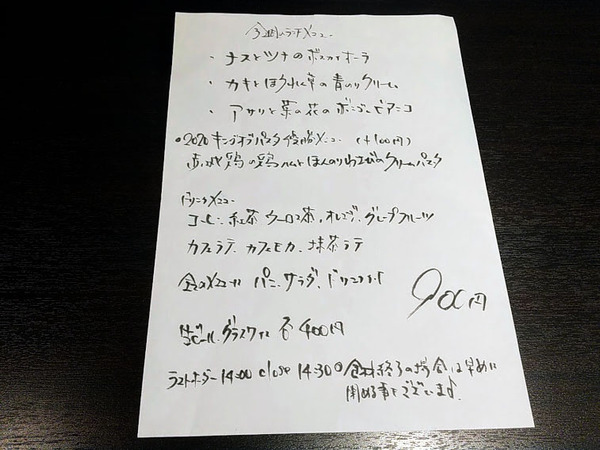 今週のランチメニュー
・ナスとツナのボスカイオーラ
・カキとほうれん草の青のりクリーム
・アサリと菜の花のボンゴレビアンコ
◦2020キングオブパスタ優勝メニュー (+100円)
赤城鶏の鶏ハムとほんのりわさびのクリームパスタ
ドリンクメニュー
コーヒー、紅茶、ウーロン茶、オレンジ、グレープフルーツ
カフェラテ、カフェモカ、抹茶ラテ
全てのメニューに パン、サラダ、ドリンク付
900円
生ビール、グラスワイン 各400円
ラストオーダー 14:00 close 14:30 食材終了の場合は早めに
閉める事もございます。